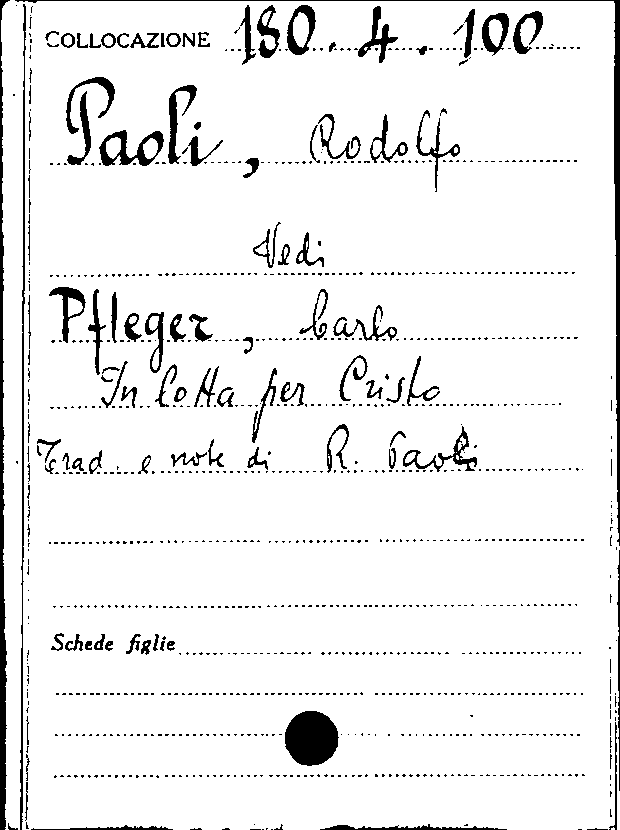 COLLOCAZIONE 180.4.100
Paoli, Rodolfo
Vedi
Pfleger, Carlo
In lotta per Cristo
Trad. e note di R. Paoli
Schede figlie